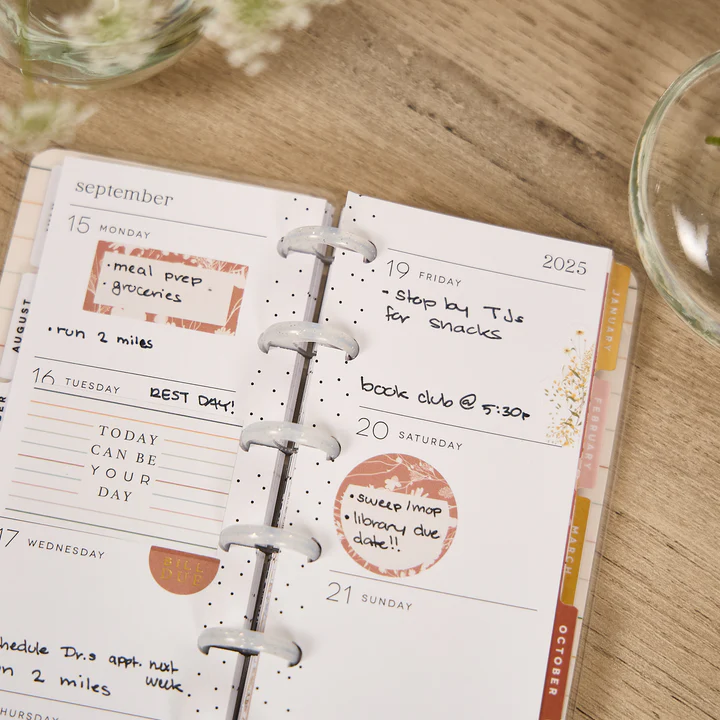 september
15 MONDAY
• meal prep
• groceries
• run 2 miles
16 TUESDAY REST DAY!
TODAY
CAN BE
YOUR
DAY
17 WEDNESDAY
BILL
DUE
Dr.s appt. next
week.
2 miles
2025
19 FRIDAY
• stop by TJs
for snacks
book club @ 5:30p
20 SATURDAY
• sweep/mop
• library due
date!!
21 SUNDAY
AUGUST
JANUARY
FEBRUARY
MARCH
OCTOBER